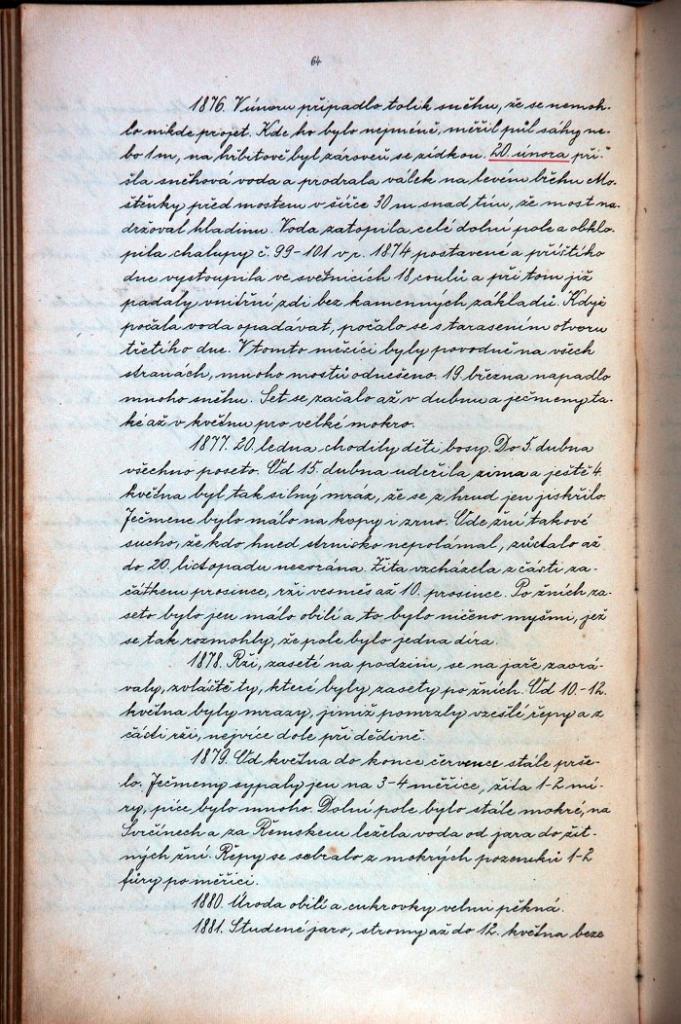 64
1876. V únoru připadlo tolik sněhu, že se nemoh-
lo nikde projet. Kde ho bylo nejméně, měřil půl sáhy ne-
bo 1 m, na hřbitově byl zároveň se zídkou. 20. února při-
šla sněhová voda a prodrala válek na levém břehu Mo-
štěnky před mostem v šířce 30 m snad tím, že most na-
držoval hladinu. Voda zatopila celé dolní pole a obklo-
pila chalupy č. 99-101 v r. 1874 postavené a příštího
dne vystoupila ve světnicích 18 coulů a při tom již
padaly vnitřní zdi bez kamenných základů. Když
počala voda opadávat, počalo se s tarasením otvoru
třetího dne. V tomto měsíci byly povodně na všech
stranách, mnoho mostů odneseno. 19. března napadlo
mnoho sněhu. Set se začalo až v dubnu a ječmeny ta-
ké až v květnu pro velké mokro.
1877. 20. ledna chodily děti bosy. Do 5. dubna
všechno poseto. Od 15. dubna udeřila zima a ještě 4.
května byl tak silný mráz, že se z hrud jen jiskřilo.
Ječmene bylo málo na kopy i zrno. Ode žní takové
sucho, že kdo hned strnisko nepolámal, zůstalo až
do 20. listopadu nezorána. Žita vzcházela z části za-
čátkem prosince, rži vesměs až 10. prosince. Po žních za-
seto bylo jen málo obilí a to bylo ničeno myšmi, jež
se tak rozmohly, že pole bylo jedna díra.
1878. Rži, zaseté na podzim, se na jaře zaorá-
valy, zvláště ty, které byly zasety po žních. Od 10-12.
května byly mrazy, jimiž pomrzly vzešlé řepy a z
části rži, nejvíce dole při dědině.
1879. Od května do konce července stále prše-
lo. Ječmeny sypaly jen na 3-4 měřice, žita 1-2 mí-
ry, píce bylo mnoho. Dolní pole bylo stále mokré, na
Svrčinech a za Řemskem ležela voda od jara do žit-
ných žní. Řepy se sebralo z mokrých pozemků 1-2
fůry po měřici.
1880. Úroda obilí a cukrovky velmi pěkná.
1881. Studené jaro, stromy až do 12. května beze